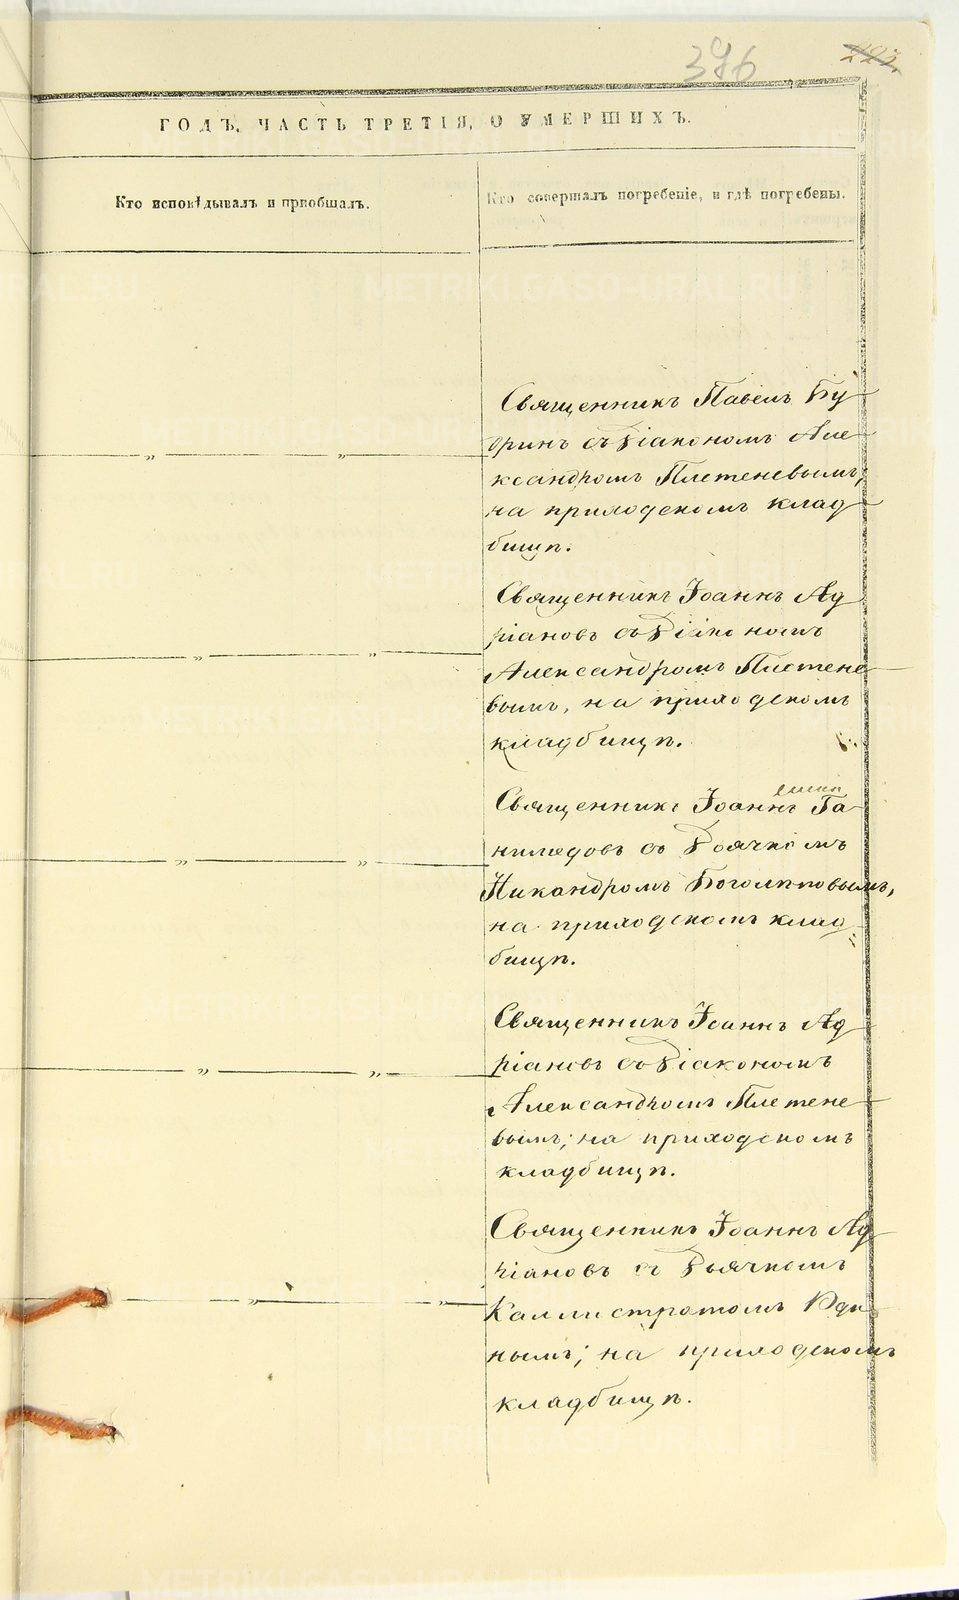 376
223.
ГОДЪ, ЧАСТЬ ТРЕТІЯ, О УМЕРШИХЪ.
Кто исповѣдывалъ и пріобщалъ.
Кто совершалъ погребеніе, и гдѣ погребены.
Священникъ Павелъ Бу-
дринъ съ діакономъ Але-
ксандромъ Плетеневымъ,
на приходскомъ клад-
бищѣ.
Священникъ Іоаннъ Ад-
ріановъ съ діакономъ
Александромъ Плетене-
вымъ, на приходскомъ
кладбищѣ.
Священникъ Іоаннъ Га-
нимедовъ съ дьячкомъ
Никандромъ Боголѣповымъ,
на приходскомъ клад-
бищѣ.
Священникъ Іоаннъ Ад-
ріановъ съ діакономъ
Александромъ Плетене-
вымъ; на приходскомъ
кладбищѣ.
Священникъ Іоаннъ Ад-
ріановъ съ дьячкомъ
Каллистратомъ
нымъ; на приходскомъ
кладбищѣ.
METRIKI.GASO-URAL.RU